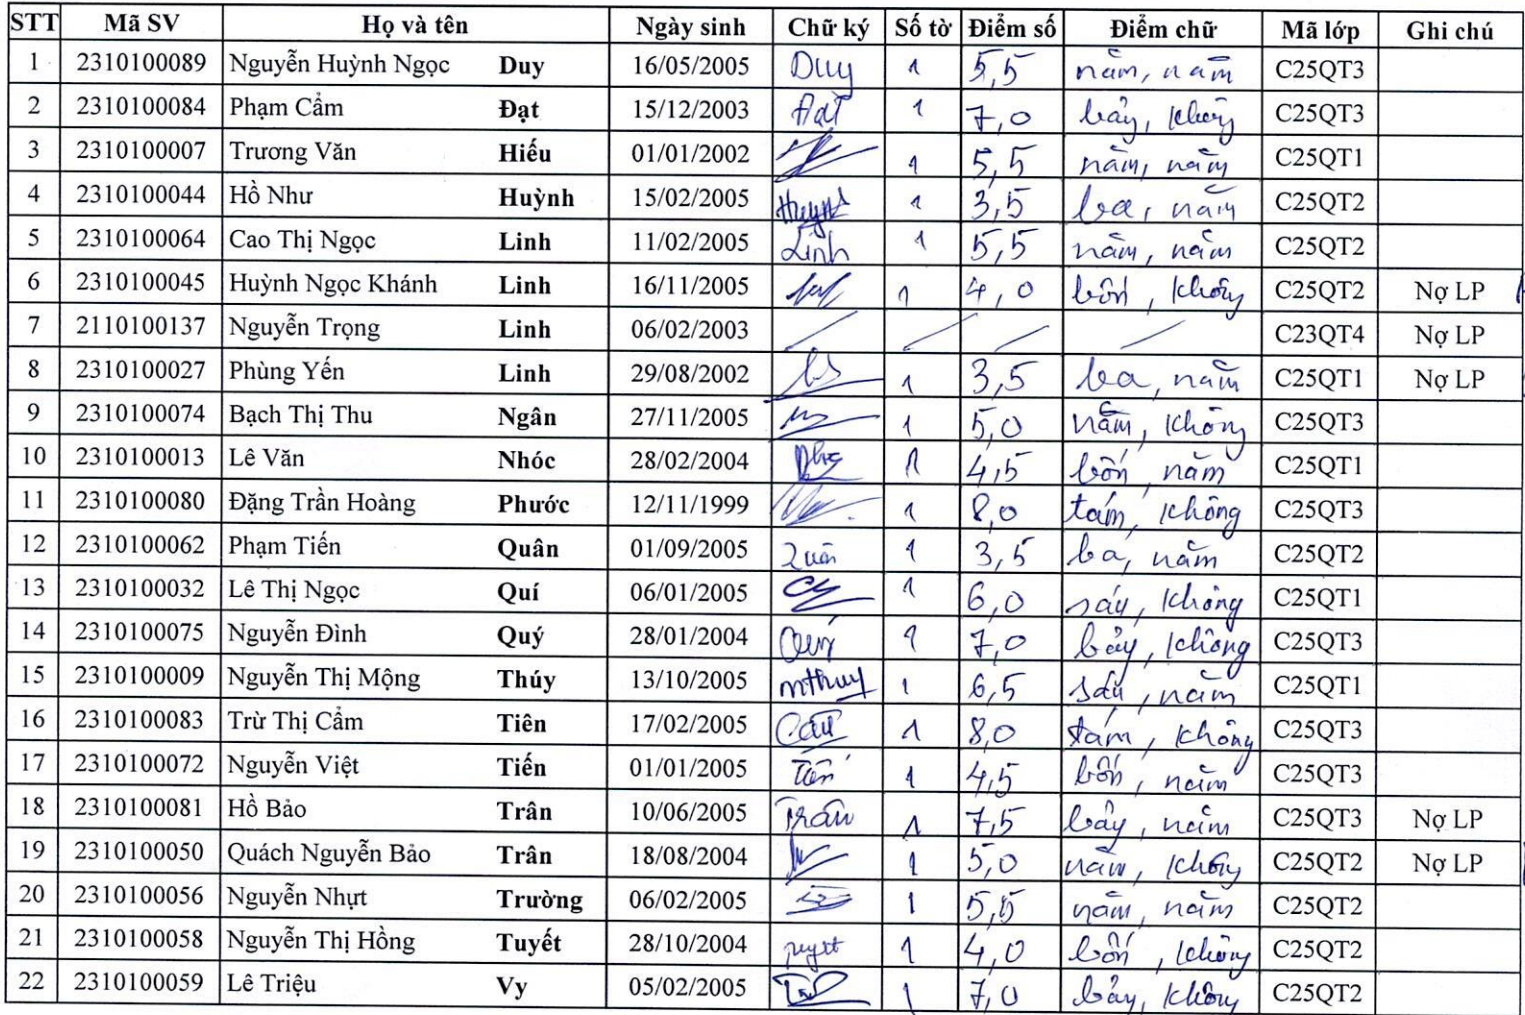 STT Mã SV Họ và tên Ngày sinh Chữ ký Số tờ Điểm số Điểm chữ Mã lớp Ghi chú
1 2310100089 Nguyễn Huỳnh Ngọc Duy 16/05/2005 Duy 1 5,5 năm, năm C25QT3
2 2310100084 Phạm Cẩm Đạt 15/12/2003 Đạt 1 7,0 bảy, không C25QT3
3 2310100007 Trương Văn Hiếu 01/01/2002 1 5,5 năm, năm C25QT1
4 2310100044 Hồ Như Huỳnh 15/02/2005 Huỳnh 1 3,5 ba, năm C25QT2
5 2310100064 Cao Thị Ngọc Linh 11/02/2005 Linh 1 5,5 năm, năm C25QT2
6 2310100045 Huỳnh Ngọc Khánh Linh 16/11/2005 1 4,0 bốn, không C25QT2 Nợ LP
7 2110100137 Nguyễn Trọng Linh 06/02/2003 / / / / C23QT4 Nợ LP
8 2310100027 Phùng Yến Linh 29/08/2002 1 3,5 ba, năm C25QT1 Nợ LP
9 2310100074 Bạch Thị Thu Ngân 27/11/2005 1 5,0 năm, không C25QT3
10 2310100013 Lê Văn Nhóc 28/02/2004 1 4,5 bốn, năm C25QT1
11 2310100080 Đặng Trần Hoàng Phước 12/11/1999 1 8,0 tám, không C25QT3
12 2310100062 Phạm Tiến Quân 01/09/2005 Quân 1 3,5 ba, năm C25QT2
13 2310100032 Lê Thị Ngọc Quí 06/01/2005 1 6,0 sáu, không C25QT1
14 2310100075 Nguyễn Đình Quý 28/01/2004 Quý 1 7,0 bảy, không C25QT3
15 2310100009 Nguyễn Thị Mộng Thúy 13/10/2005 mthuy 1 6,5 sáu, năm C25QT1
16 2310100083 Trừ Thị Cẩm Tiên 17/02/2005 1 8,0 tám, không C25QT3
17 2310100072 Nguyễn Việt Tiến 01/01/2005 Tiến 1 4,5 bốn, năm C25QT3
18 2310100081 Hồ Bảo Trân 10/06/2005 Trân 1 7,5 bảy, năm C25QT3 Nợ LP
19 2310100050 Quách Nguyễn Bảo Trân 18/08/2004 1 5,0 năm, không C25QT2 Nợ LP
20 2310100056 Nguyễn Nhựt Trường 06/02/2005 1 5,5 năm, năm C25QT2
21 2310100058 Nguyễn Thị Hồng Tuyết 28/10/2004 1 4,0 bốn, không C25QT2
22 2310100059 Lê Triệu Vy 05/02/2005 1 7,0 bảy, không C25QT2